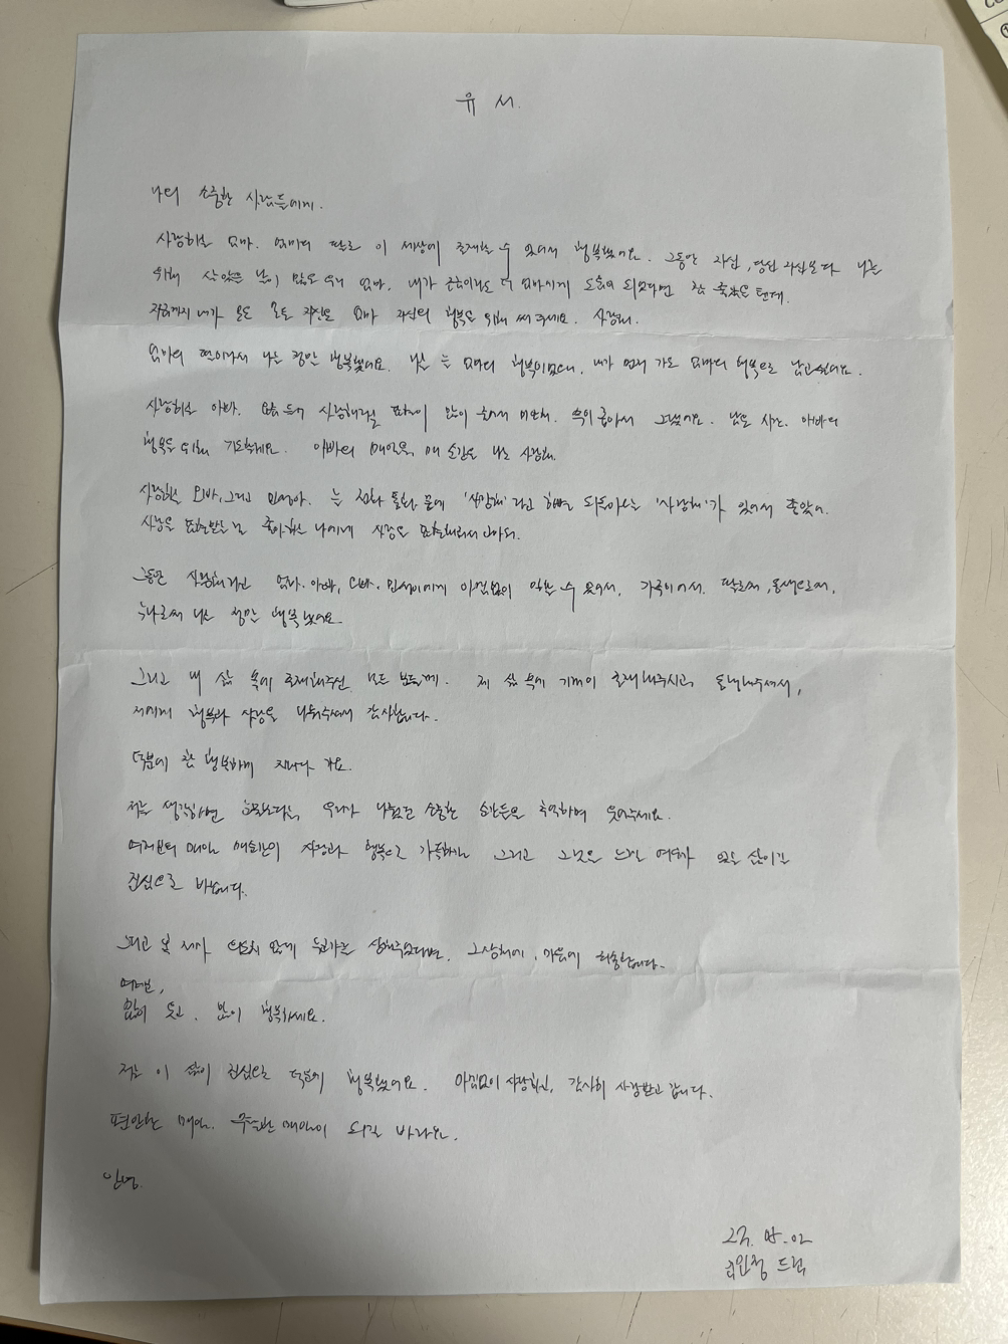 유 서.
나의 소중한 사람들에게.
사랑하는 엄마. 엄마의 딸로 이 세상에 존재할 수 있어서 행복했어요. 그동안 자신, 당신 자신보다 나를
위해 살았을 날이 많은 우리 엄마. 내가 조금이라도 더 엄마에게 도움이 되었다면 참 좋았을 텐데.
사랑해.
엄마의 딸이라서 나는 정말 행복했어요. 나는 엄마의 행복이었으니, 내가 먼저 가도 엄마의 행복으로 남고싶어요.
사랑하는 아빠. 요즘 들어 사랑해라는 표현이 많이 미안해.
행복을 위해 기도할게요. 아빠의 매일을, 매 순간을 나는 사랑해.
사랑하는 오빠, 그리고 늘 전화 통화 끝에 '사랑해'라고 하면 되돌아오는 '사랑해'가 있어서 좋았어.
사랑을 표현받는 걸 좋아하는 나에게 사랑을 표현해줘서 고마워.
그동안 엄마. 아빠, 오빠. 아낌없이 수 있어서, 가족이어서. 딸로써, 동생으로써,
누나로써 나는 정말 행복했어요.
그리고 내 삶 속에 존재해주신 모든 분들께. 제 삶 속에 기꺼이 존재해주시고, 동행해주셔서,
저에게 행복과 사랑을 나눠주셔서 감사합니다.
덕분에 참 행복하게 지내다 가요.
저를 생각하면 우리가 나눴던 소중한 순간들을 추억하며 웃어주세요.
여러분의 매일 매순간이 사랑과 행복으로 가득하길 그리고 그것을 느낄 여유가 있는 삶이길
진심으로 바랍니다.
그리고 혹 제가 의도치 않게 누군가를 상처주었다면, 그 상처에, 마음에 죄송합니다.
여러분,
많이 웃고. 많이 행복하세요.
저는 이 삶이 진심으로 덕분에 행복했어요. 아낌없이 사랑하고, 감사히 사랑받고 갑니다.
편안한 매일. 매일이 되길 바라요.
안녕.
드림